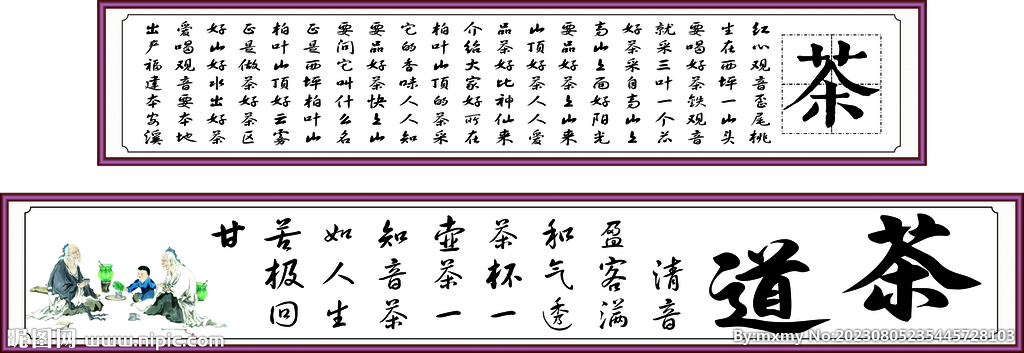 茶
红心观音歪尾桃
生在西坪一山头
要喝好茶铁观音
就采三叶一个芯
好茶采自高山上
高山上面好阳光
要品好茶上山来
山顶好茶人人爱
品茶好比神仙来
介绍大家好所在
柏叶山顶的茶采
它的香味人人知
要品好茶快上山
要问它叫什么名
正是西坪柏叶山
柏叶山顶好云雾
正是做茶好茶区
好山好水出好茶
爱喝观音要本地
出产福建本安溪
茶道
清音
盈客满
和气透
茶杯一
壶茶一
知音茶
如人生
苦极回
甘
昵图网 www.nipic.com
By:mxmy No.20230805235445728103